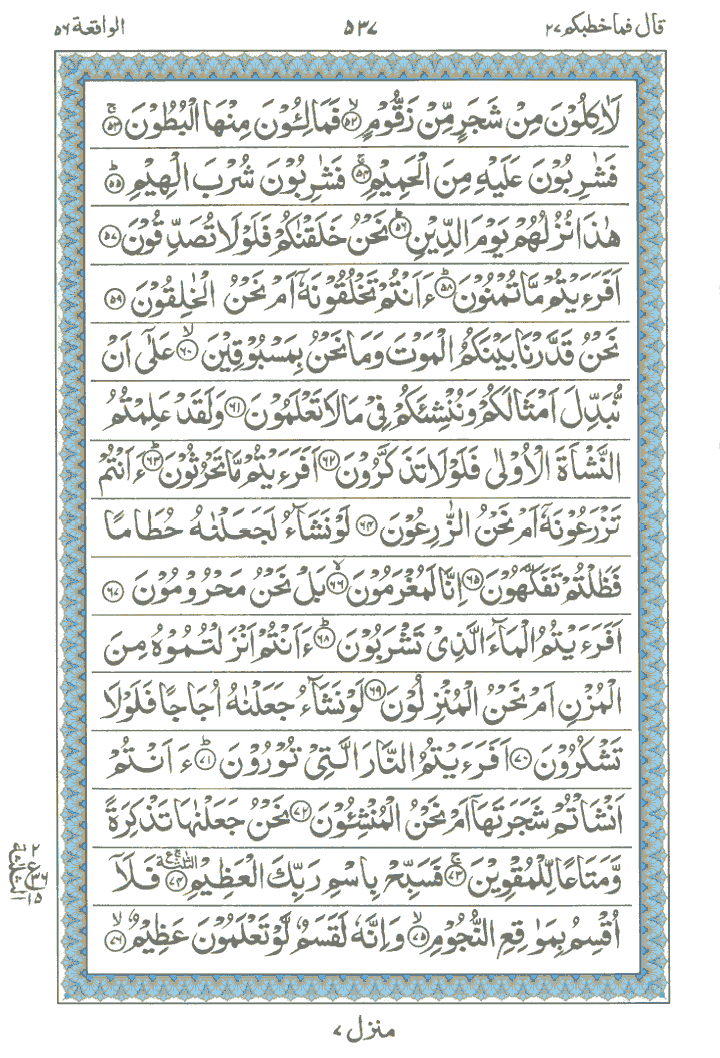 قال فما خطبكم ٢٧
٥٣٧
الواقعة ٥٦
لَاٰكِلُوْنَ مِنْ شَجَرٍ مِّنْ زَقُّوْمٍ ۙ﴿٥٢﴾ فَمَالِـُٔوْنَ مِنْهَا الْبُطُوْنَ ۚ﴿٥٣﴾
فَشٰرِبُوْنَ عَلَيْهِ مِنَ الْحَمِيْمِ ۚ﴿٥٤﴾ فَشٰرِبُوْنَ شُرْبَ الْهِيْمِ ؕ﴿٥٥﴾
هٰذَا نُزُلُهُمْ يَوْمَ الدِّيْنِ ؕ﴿٥٦﴾ نَحْنُ خَلَقْنٰكُمْ فَلَوْلَا تُصَدِّقُوْنَ ﴿٥٧﴾
اَفَرَءَيْتُمْ مَّا تُمْنُوْنَ ؕ﴿٥٨﴾ ءَاَنْتُمْ تَخْلُقُوْنَهٗۤ اَمْ نَحْنُ الْخٰلِقُوْنَ ﴿٥٩﴾
نَحْنُ قَدَّرْنَا بَيْنَكُمُ الْمَوْتَ وَمَا نَحْنُ بِمَسْبُوْقِيْنَ ۙ﴿٦٠﴾ عَلٰۤى اَنْ
نُّبَدِّلَ اَمْثَالَكُمْ وَنُنْشِئَكُمْ فِيْ مَا لَا تَعْلَمُوْنَ ﴿٦١﴾ وَلَقَدْ عَلِمْتُمُ
النَّشْاَةَ الْاُوْلٰى فَلَوْلَا تَذَكَّرُوْنَ ﴿٦٢﴾ اَفَرَءَيْتُمْ مَّا تَحْرُثُوْنَ ؕ﴿٦٣﴾ ءَاَنْتُمْ
تَزْرَعُوْنَهٗۤ اَمْ نَحْنُ الزّٰرِعُوْنَ ﴿٦٤﴾ لَوْ نَشَآءُ لَجَعَلْنٰهُ حُطَامًا
فَظَلْتُمْ تَفَكَّهُوْنَ ﴿٦٥﴾ اِنَّا لَمُغْرَمُوْنَ ۙ﴿٦٦﴾ بَلْ نَحْنُ مَحْرُوْمُوْنَ ﴿٦٧﴾
اَفَرَءَيْتُمُ الْمَآءَ الَّذِيْ تَشْرَبُوْنَ ؕ﴿٦٨﴾ ءَاَنْتُمْ اَنْزَلْتُمُوْهُ مِنَ
الْمُزْنِ اَمْ نَحْنُ الْمُنْزِلُوْنَ ﴿٦٩﴾ لَوْ نَشَآءُ جَعَلْنٰهُ اُجَاجًا فَلَوْلَا
تَشْكُرُوْنَ ﴿٧٠﴾ اَفَرَءَيْتُمُ النَّارَ الَّتِيْ تُوْرُوْنَ ؕ﴿٧١﴾ ءَاَنْتُمْ
اَنْشَاْتُمْ شَجَرَتَهَاۤ اَمْ نَحْنُ الْمُنْشِـُٔوْنَ ﴿٧٢﴾ نَحْنُ جَعَلْنٰهَا تَذْكِرَةً
وَّمَتَاعًا لِّلْمُقْوِيْنَ ۚ﴿٧٣﴾ فَسَبِّحْ بِاسْمِ رَبِّكَ الْعَظِيْمِ ﴿٧٤﴾ فَلَاۤ
اُقْسِمُ بِمَوٰقِعِ النُّجُوْمِ ۙ﴿٧٥﴾ وَاِنَّهٗ لَقَسَمٌ لَّوْ تَعْلَمُوْنَ عَظِيْمٌ ۙ﴿٧٦﴾
٢
ع
٣٦
١٥
منزل ٧